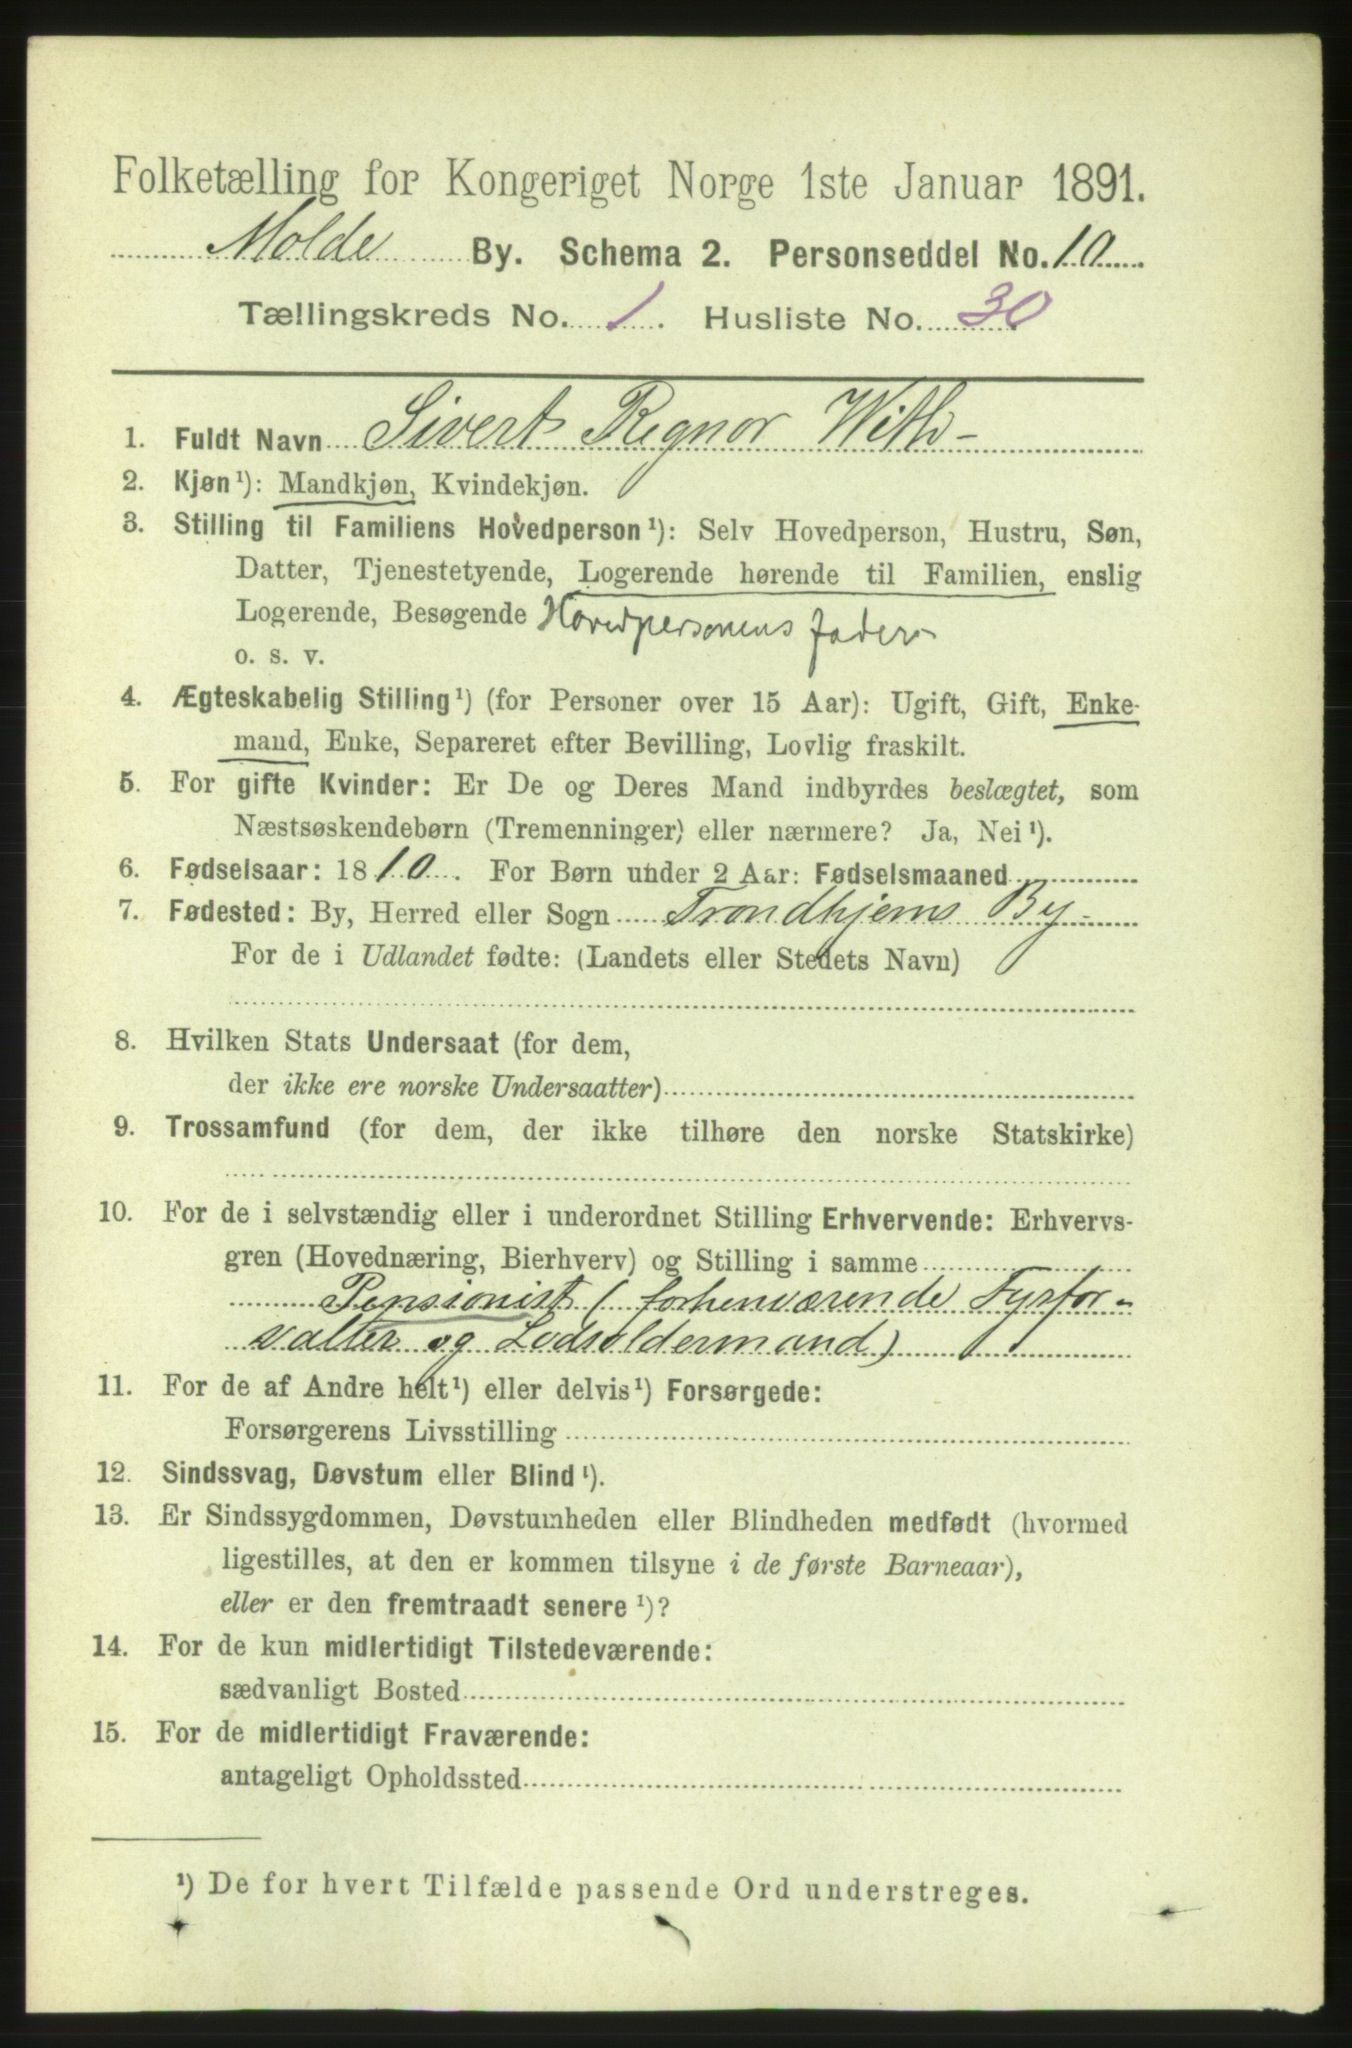 Folketælling for Kongeriget Norge 1ste Januar 1891.
Molde By. Schema 2. Personseddel No. 10
Tællingskreds No. 1. Husliste No. 30
1. Fuldt Navn Sivert Regnor With-
2. Kjøn¹): Mandkjøn, Kvindekjøn.
3. Stilling til Familiens Hovedperson¹): Selv Hovedperson, Hustru, Søn,
Datter, Tjenestetyende, Logerende hørende til Familien, enslig
Logerende, Besøgende Hovedpersonens fader-
o. s. v.
4. Ægteskabelig Stilling¹) (for Personer over 15 Aar): Ugift, Gift, Enke-
mand, Enke, Separeret efter Bevilling, Lovlig fraskilt.
5. For gifte Kvinder: Er De og Deres Mand indbyrdes beslægtet, som
Næstsøskendebørn (Tremenninger) eller nærmere? Ja, Nei¹).
6. Fødselsaar: 1810. For Børn under 2 Aar: Fødselsmaaned
7. Fødested: By, Herred eller Sogn Trondhjems By-
For de i Udlandet fødte: (Landets eller Stedets Navn)
8. Hvilken Stats Undersaat (for dem,
der ikke ere norske Undersaatter)
9. Trossamfund (for dem, der ikke tilhøre den norske Statskirke)
10. For de i selvstændig eller i underordnet Stilling Erhvervende: Erhvervs-
gren (Hovednæring, Bierhverv) og Stilling i samme
Pensionist (forhenværende Fyrfor-
valter og Lodsoldermand)
11. For de af Andre helt¹) eller delvis¹) Forsørgede:
Forsørgerens Livsstilling
12. Sindssvag, Døvstum eller Blind¹).
13. Er Sindssygdommen, Døvstumheden eller Blindheden medfødt (hvormed
ligestilles, at den er kommen tilsyne i de første Barneaar),
eller er den fremtraadt senere¹)?
14. For de kun midlertidigt Tilstedeværende:
sædvanligt Bosted
15. For de midlertidigt Fraværende:
antageligt Opholdssted
¹) De for hvert Tilfælde passende Ord understreges.